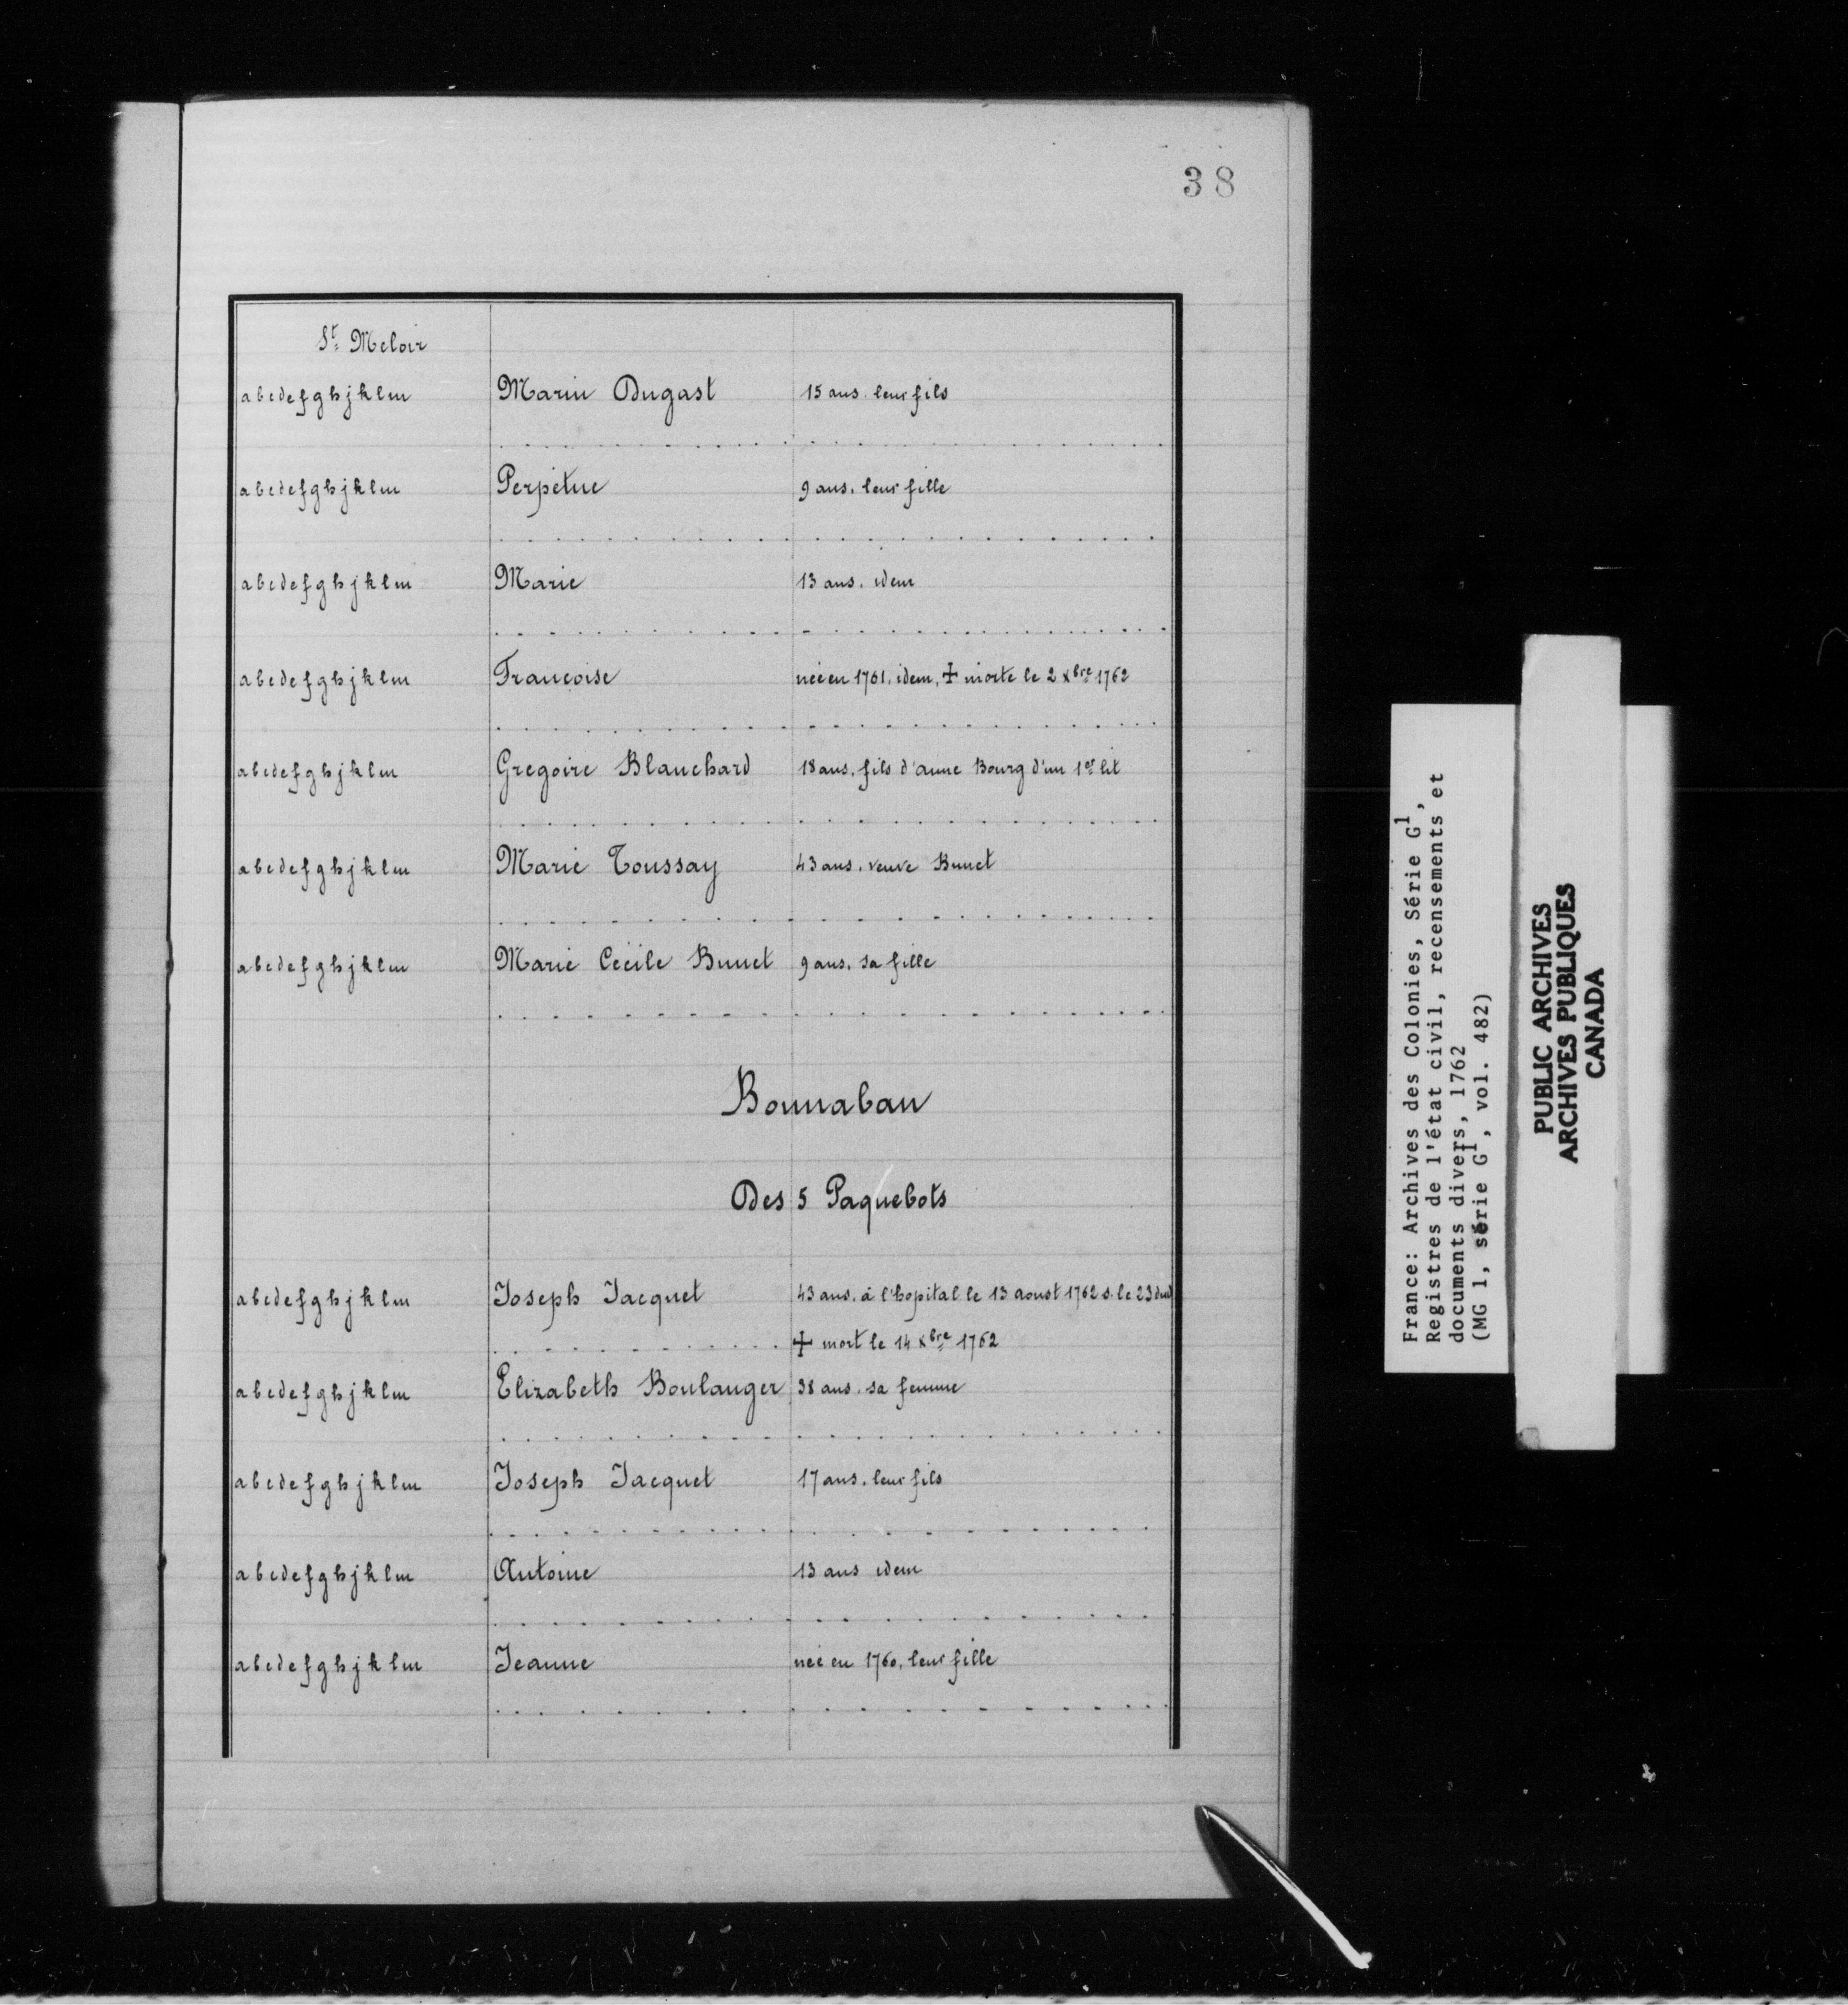 38
St. Meloir
abcdefghjklm Marin Dugast 15 ans. leur fils
abcdefghjklm Perpétue 9 ans. leur fille
abcdefghjklm Marie 13 ans. idem
abcdefghjklm Françoise née en 1761. idem, ✝ morte le 2 xbre 1762
abcdefghjklm Gregoire Blanchard 18 ans. fils d'anne Bourg d'un 1er lit
abcdefghjklm Marie Toussay 43 ans. veuve Bunet
abcdefghjklm Marie Cecile Bunet 9 ans. sa fille
Bonnaban
Des 5 Paquebots
abcdefghjklm Joseph Jacquet 43 ans. à l'hopital le 13 aoust 1762 s. le 23 dud
✝ mort le 14 xbre 1762
abcdefghjklm Elizabeth Boulanger 38 ans. sa femme
abcdefghjklm Joseph Jacquet 17 ans. leur fils
abcdefghjklm Antoine 13 ans idem
abcdefghjklm Jeanne née en 1760. leur fille
France: Archives des Colonies, Série G1,
Registres de l'état civil, recensements et
documents divers, 1762
(MG 1, série G1, vol. 482)
PUBLIC ARCHIVES
ARCHIVES PUBLIQUES
CANADA